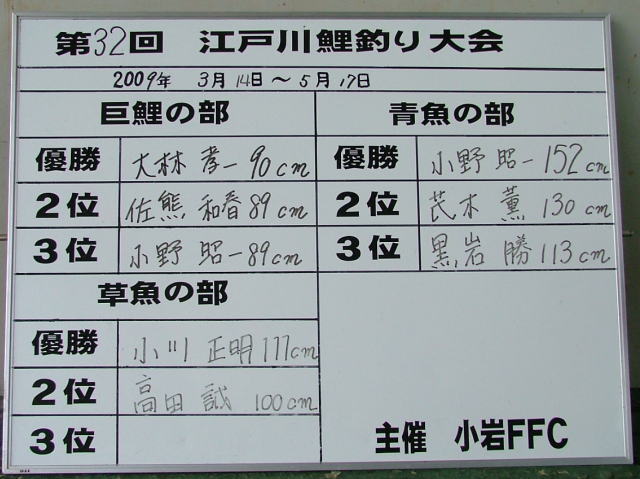 第32回 江戸川鯉釣り大会
2009年 3月14日〜5月17日
巨鯉の部
優勝 大林 孝一 90cm
2位 佐熊 和春 89cm
3位 小野 昭一 89cm
草魚の部
優勝 小川 正明 111cm
2位 高田 誠 100cm
3位
青魚の部
優勝 小野 昭一 152cm
2位 茂木 薫 130cm
3位 黒岩 勝 113cm
主催 小岩FFC